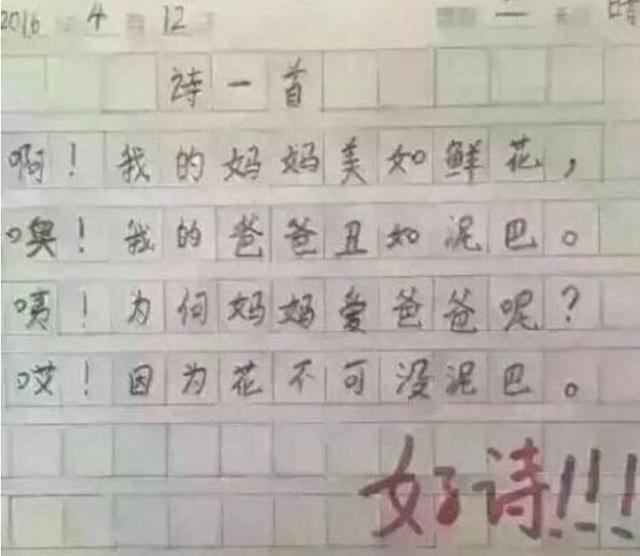 2016年4月12日 二 晴
诗一首
啊！我的妈妈美如鲜花，
噢！我的爸爸丑如泥巴。
咦！为何妈妈爱爸爸呢？
哎！因为花不可没泥巴。
好诗!!!